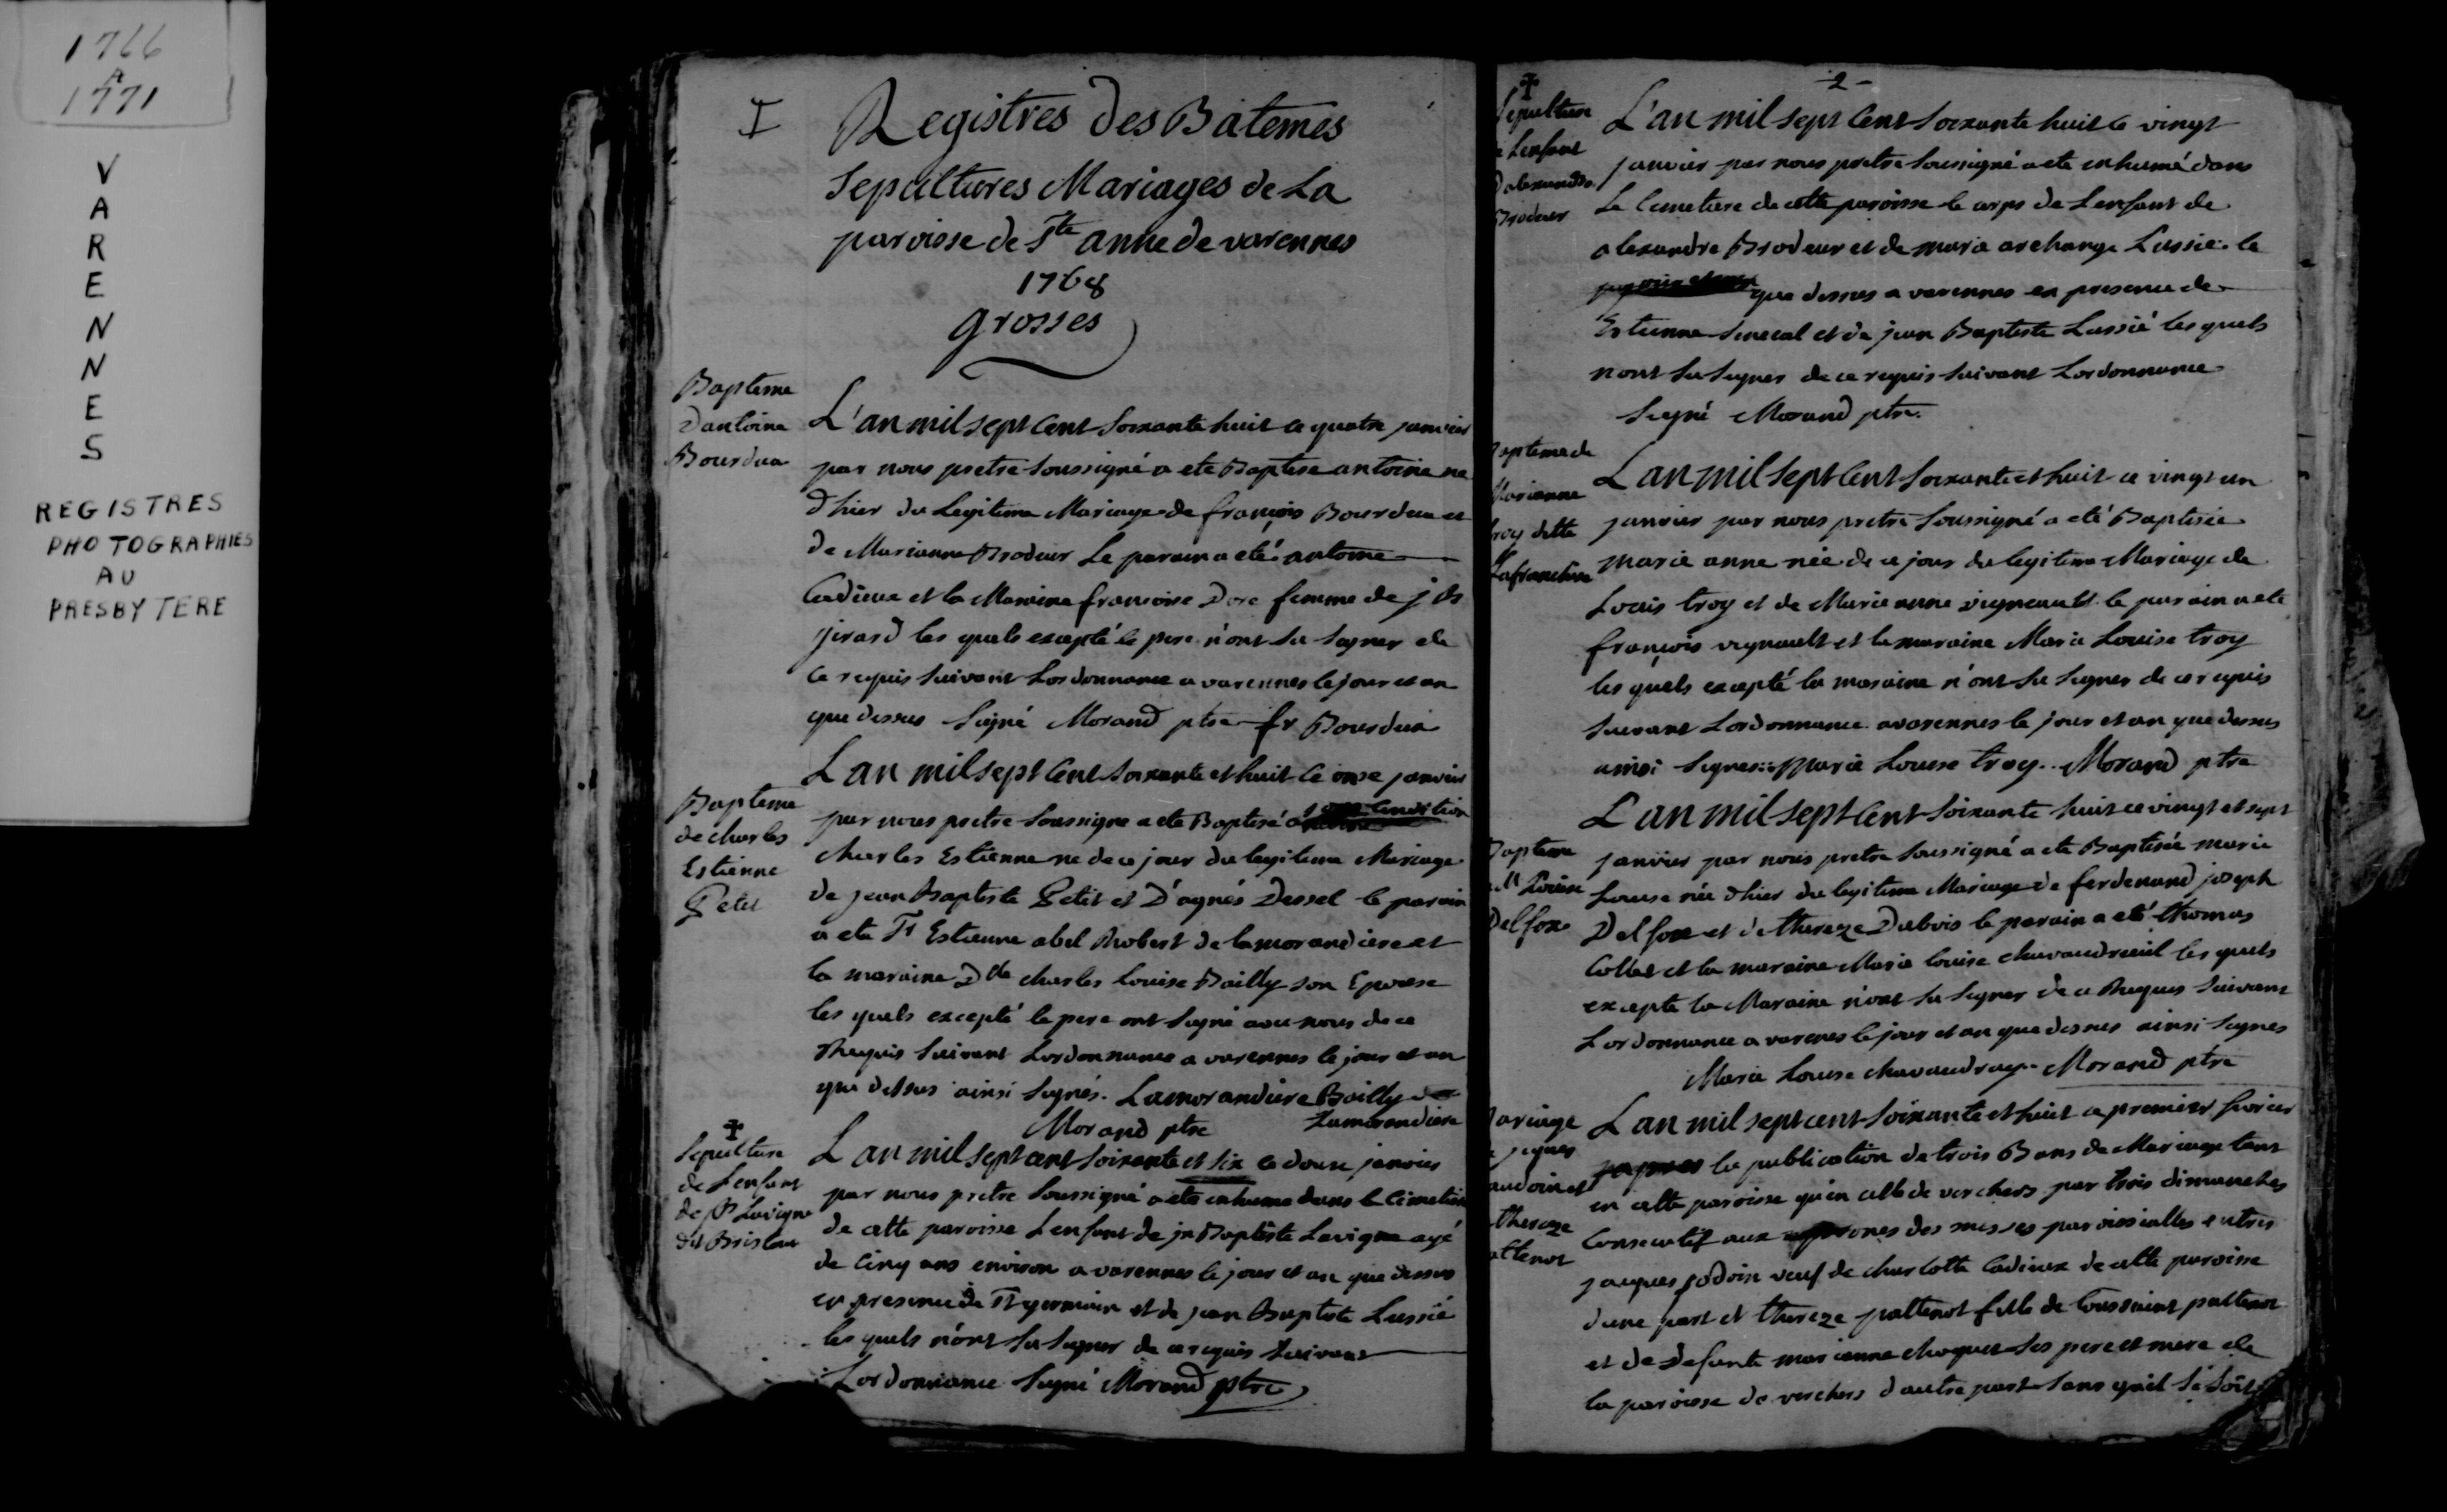 1766
A
1771
V
A
R
E
N
N
E
S
REGISTRES
PHOTOGRAPHIES
AU
PRESBYTERE
I
Registres des Batemes
Sepultures Mariages de La
paroisse de Ste anne de varennes
1768
grosses
Bapteme
Dantoine
Bourdua
L'an mil sept Cent soixante huit ce quatre janvier
par nous pretre soussigné a ete Baptise antoine ne
d'hier du Legitime Mariage de françois Bourdua et
de Marianne Brodeur Le parain a eté antoine
Cadieux et la Maraine francoise Dore femme de
jirard les quels excepté le pere n'ont su signer de
ce requis suivant Lordonnance a varennes le jour et an
que dessus Signé Morand ptre fr Bourdua
Bapteme
de charles
Estienne
Petit
L an mil sept Cent soixante et huit ce onze janvier
par nous pretre soussigne a ete Baptisé
charles Estienne ne de ce jour du legitime Mariage
de jean Baptiste Petit et D'agnés Dessel le parain
a ete Mr Estienne abel Robert de lamorandiere et
la maraine Dlle charles Louise Bailly son Epouse
les quels excepté le pere ont signé avec nous de ce
Requis suivant Lordonnance a varennes le jour et an
que dessus ainsi signés. Lamorandiere Bailly de
Morand ptre Lamorandiere
Sepulture
de Lenfant
de Bt Lavigne
dit Brisetout
L an mil sept cent soixante et six ce douze janvier
par nous pretre soussigné a ete inhume dans le Cimetiere
de cette paroisse Lenfant de jn Baptiste Lavigne agé
de Cinq ans environ a varennes le jour et an que dessus
en presence de germain et de jean Baptiste Lussié
les quels n'ont su signer de ce requis suivant
Lordonnance Signé Morand ptre
-2-
Sepulture
de Lenfant
Dalexandre
Brodeur
L'an mil sept Cent soixante huit ce vingt
janvier par nous pretre soussigné a ete inhumé dans
Le Cimetiere de cette paroisse le corps de Lenfant de
alexandre Brodeur et de marie archange Lussié le
que dessus a varennes en presence de
Estienne senecal et de jean Baptiste Lussié les quels
n'ont su signer de ce requis suivant Lordonnance
Signé Morand ptre.
Bapteme de
Marianne
troy ditte
Lafranchise
L an mil sept Cent soixante et huit ce vingt un
janvier par nous pretre soussigné a eté Baptisée
marie anne née de ce jour du legitime Mariage de
Louis troy et de Marie anne vigneault le parain a ete
françois vignault et la maraine Marie Louise troy
les quels excepté la maraine n'ont su signer de ce requis
suivant Lordonnance a varennes le jour et an que dessus
ainsi signes: Marie Louise troy.. Morand ptre
Bapteme
M Louise
Delfox
L an mil sept Cent soixante huit ce vingt et sept
janvier par nous pretre soussigné a ete Baptisée marie
Louise née d'hier du legitime Mariage de ferdenand joseph
Delfox et de thereze Dubois le parain a eté thomas
Collet et la maraine Marie louise chavaudreuil les quels
excepte la Maraine n'ont su signer de ce Requis suivant
Lordonnance a varenes le jour et an que dessus ainsi signes
Marie Louise chavaudray Morand ptre
Mariage
de jaques
audoin et
thereze
attenot
L an mil sept cent soixante et huit ce premier fevrier
la publication de trois Bans de Mariage tant
en cette paroisse qu'en celle de verchers par trois dimanches
Consecutif aux prones des messes paroissialles entre
jacques jodoin veuf de charlotte Cadieux de cette paroisse
dune part et thereze pattenot fille de toussaint pattenot
et de Defunte marianne choquet ses pere et mere de
la paroisse de verchers d autre part sans quil se soit